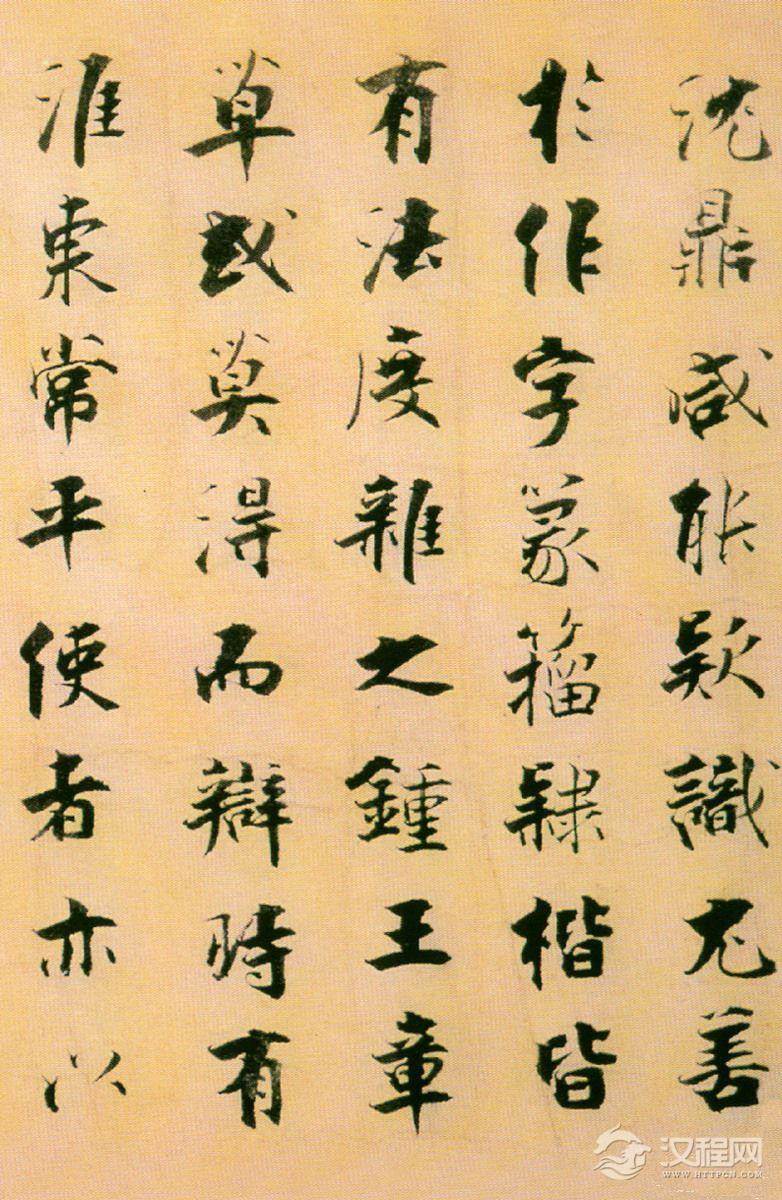 沈鼎咸能款識尤善
於作字篆籀隸楷皆
有法度雜之鍾王章
草或莫得而辯時有
淮東常平使者亦以
汉程网
WWW.HTTPCN.COM